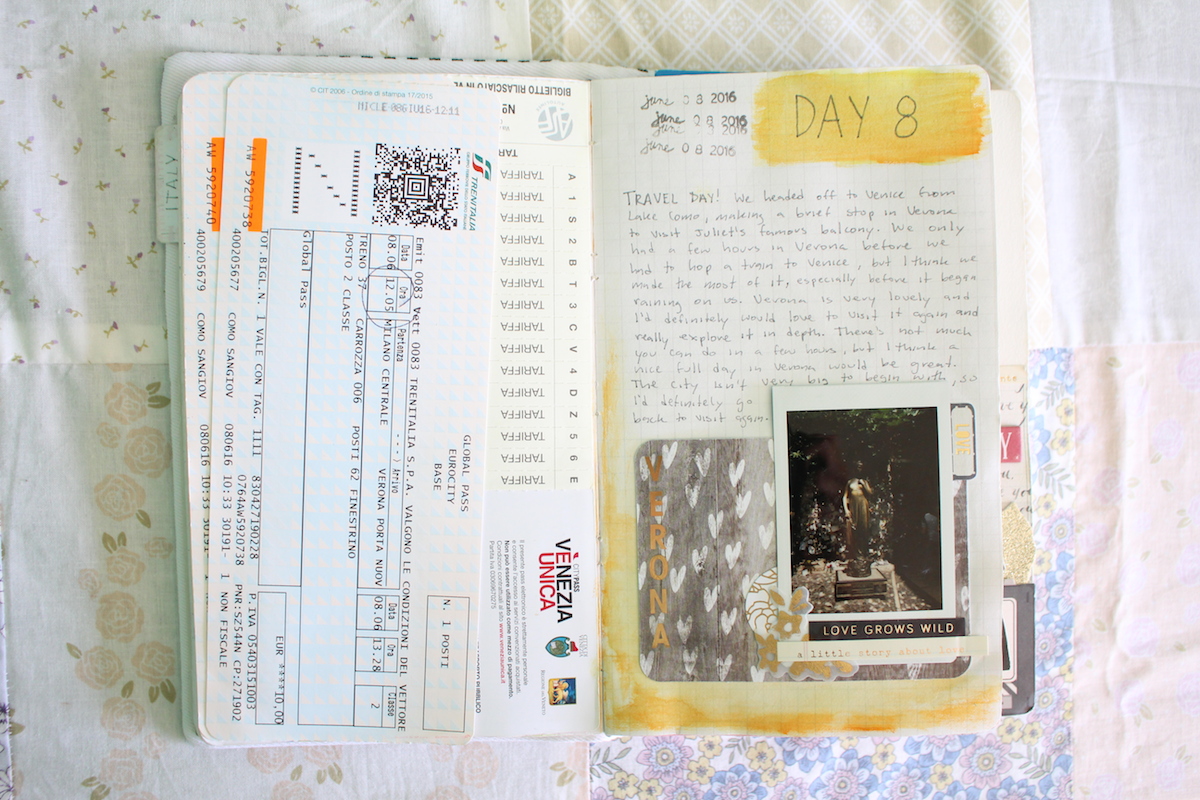 © CIT 2006 - Ordine di stampa 17/2015
NICLE 08GIU16-12:11
AW 5920740
AW 5920738
TRENITALIA
Emit 0083 Vett 0083 TRENITALIA S.P.A. VALGONO LE CONDIZIONI DEL VETTORE
GLOBAL PASS
EUROCITY
BASE
N. 1 POSTI
Data Ora Partenza ---› Arrivo Data Ora Classe
08.06 12.05 MILANO CENTRALE VERONA PORTA NUOV 08.06 13.28 2
TRENO 37 CARROZZA 006 POSTI 62 FINESTRINO
POSTO 2 CLASSE
Global Pass
EUR ****10,00
TOT.BIGL.N. 1 VALE CON TAG. 1111 830427190228 P.IVA 05403151003
0764AW5920738 PNR:SZ544N CP:271902
400205677 COMO SANGIOV 080616 10:33 30191- 1 NON FISCALE
400205679 COMO SANGIOV 080616 10:33 30191-
ITALY
BIGLIETTO RILASCIATO IN
Nº
TARIFFA A
TARIFFA 1
TARIFFA S
TARIFFA 2
TARIFFA B
TARIFFA T
TARIFFA 3
TARIFFA C
TARIFFA V
TARIFFA 4
TARIFFA D
TARIFFA Z
TARIFFA 5
TARIFFA 6
TARIFFA E
CITYPASS
VENEZIA
UNICA
Il presente pass elettronico è strettamente personale
e consente l'accesso ai servizi convenzionati acquistati.
Non può essere utilizzato come mezzo di pagamento.
Condizioni contrattuali al sito www.veneziaunica.it
REGIONE DEL VENETO
june 08 2016
june 08 2016
june 08 2016
DAY 8
TRAVEL DAY! We headed off to Venice from
Lake Como, making a brief stop in Verona
to visit Juliet's famous balcony. We only
had a few hours in Verona before we
had to hop a train to Venice, but I think we
made the most of it, especially before it began
raining on us. Verona is very lovely and
I'd definitely would love to visit it again and
really explore it in depth. There's not much
you can do in a few hours, but I think a
nice full day in Verona would be great.
The city isn't very big to begin with, so
I'd definitely go
back to visit again.
VERONA
LOVE
LOVE GROWS WILD
a little story about love